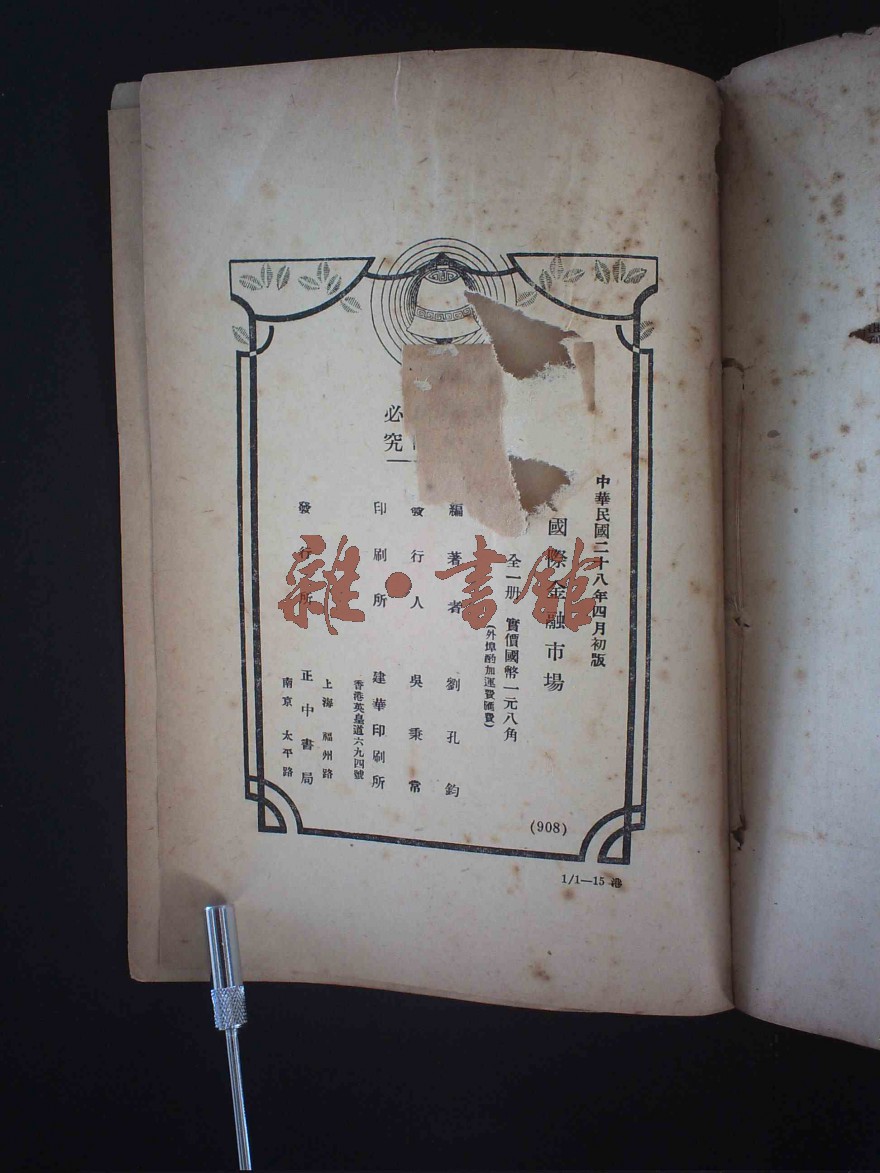 中華民國二十八年四月初版
國際金融市場
全一册 實價國幣一元八角
(外埠酌加運費匯費)
編著者 劉孔鈞
發行人 吳秉常
印刷所 建華印刷所
香港英皇道六九四號
發行所 正中書局
上海 福州路
南京 太平路
必究
(908)
1/1—15 港
雜·書館